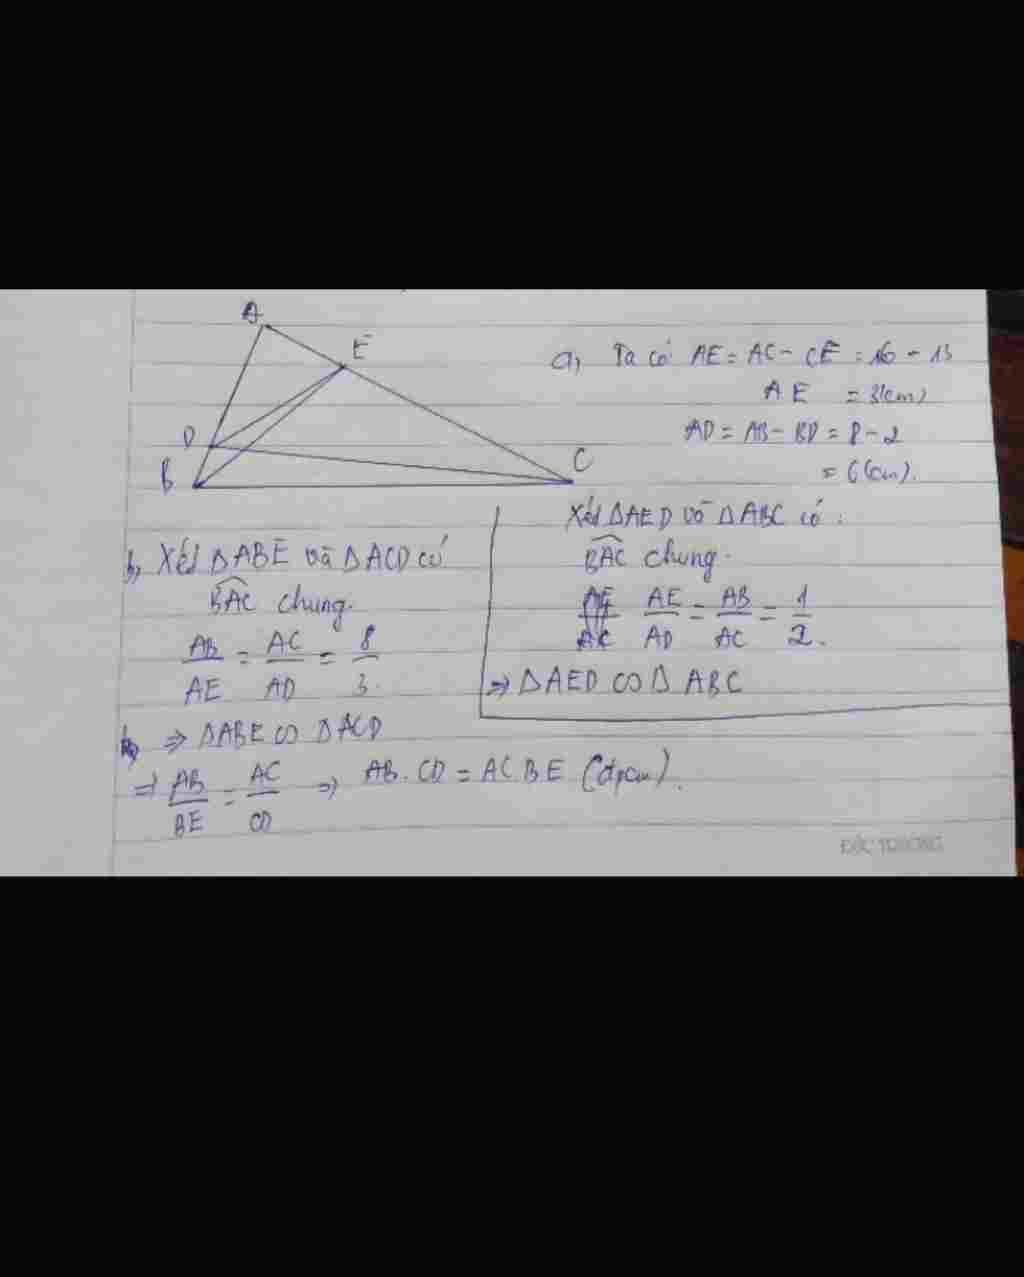 A
E
D
B
C
a, Ta có AE = AC - CE = 16 - 13
AE = 3(cm)
AD = AB - BD = 8 - 2
= 6(cm).
Xét ΔAED và ΔABC có:
BAC chung.
AE/AD = AB/AC = 1/2.
=> ΔAED ∽ Δ ABC
b, Xét ΔABE và ΔACD có
BAC chung.
AB/AE = AC/AD = 8/3.
=> ΔABE ∽ ΔACD
=> AB/BE = AC/CD => AB.CD = AC BE (đpcm).